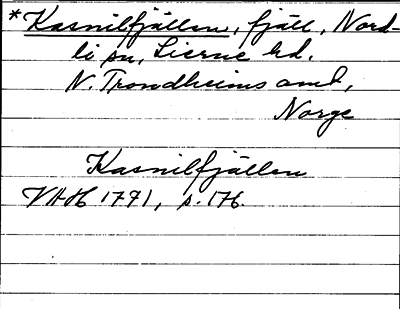 *Kasnilfjällen, fjäll, Nord-
li sn, Lierne hd.
N. Trondheims amt,
Norge
Kasnilfjällen
VAH 1791, s. 176.